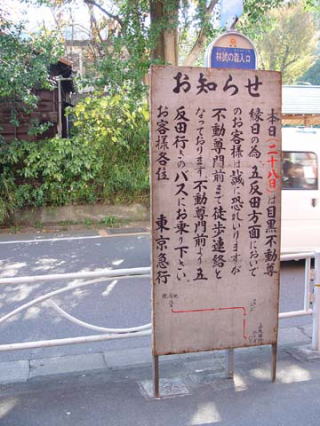 林試の森入口
お知らせ
本日(二十八日)は目黒不動尊
縁日の為、五反田方面において
のお客様は誠に恐れいりますが
不動尊門前まで徒歩連絡と
なっております。不動尊門前より五
反田行きのバスにお乗り下さい。
お客様各位 東京急行